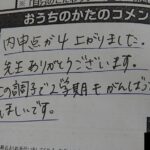 おうちのかたのコメン
内申点が4上がりました。
先生ありがとうございます。
の調子で2学期もがんばっ
ほしいです。